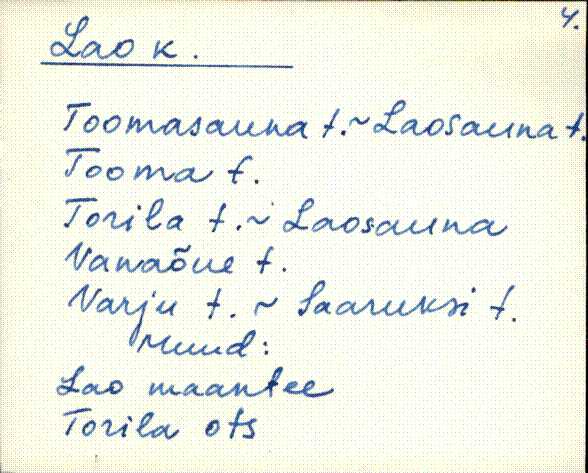 4.
Lao k.
Toomasauna t. ~ Laosauna t.
Tooma t.
Torila t. ~ Laosauna
Vanaõue t.
Varju t. ~ Saaruksi t.
Muud:
Lao maantee
Torila ots